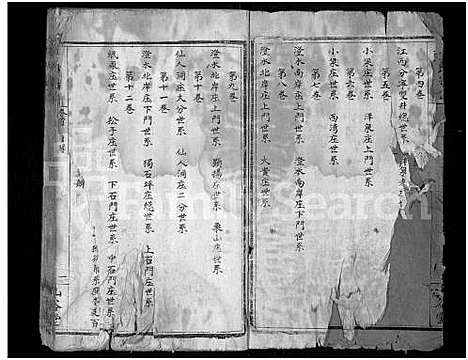 第四卷
江西分寧雙井總世系
第五卷
小梁庄世系 洋泉庄上門世系
第六卷
小梁庄世系 西湾庄世系
第七卷
澄水南岸庄上門世系 澄水南岸庄下門世系
第八卷
澄水北岸庄上門世系 大黄庄世系
第九卷
澄水北岸庄上門世系 顯揚庄世系 東山庄世系
第十卷
仙人洞庄大分世系 仙人洞庄二分世系
第十一卷
澄水北岸庄下門世系 獨石坪庄總世系 上石門庄世系
第十二卷
松子庄世系 下石門庄世系 中石門庄世系
FamilySearch